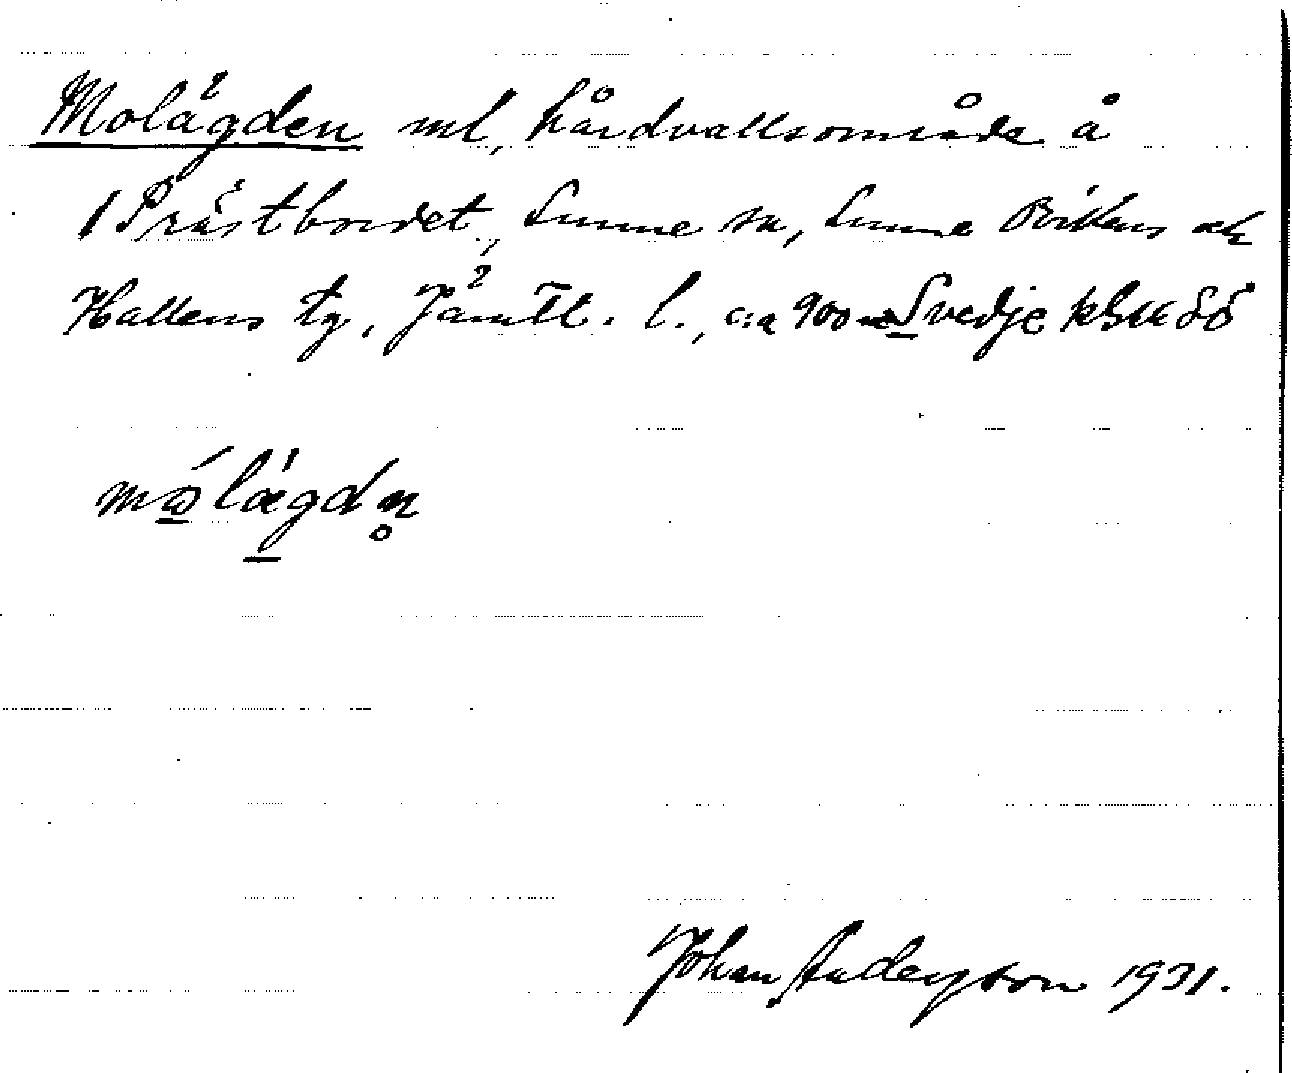 Molägden ml, hårdvallsområde å
1 Prästbordet, Sunne sn, Sunne Ovikens och
Hallens tg, Jämtl. l., c:a 900 m Svedje SO
mọ́lǽgdn̥
Johan Anderson 1931.